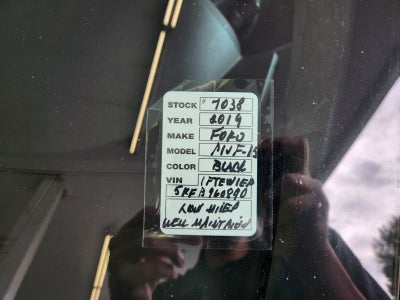 STOCK # 7038
YEAR 2019
MAKE FORD
MODEL
COLOR BLACK
VIN 1FTEW1EP
5KFA960890
LOW MILES
WELL MAINTAINED